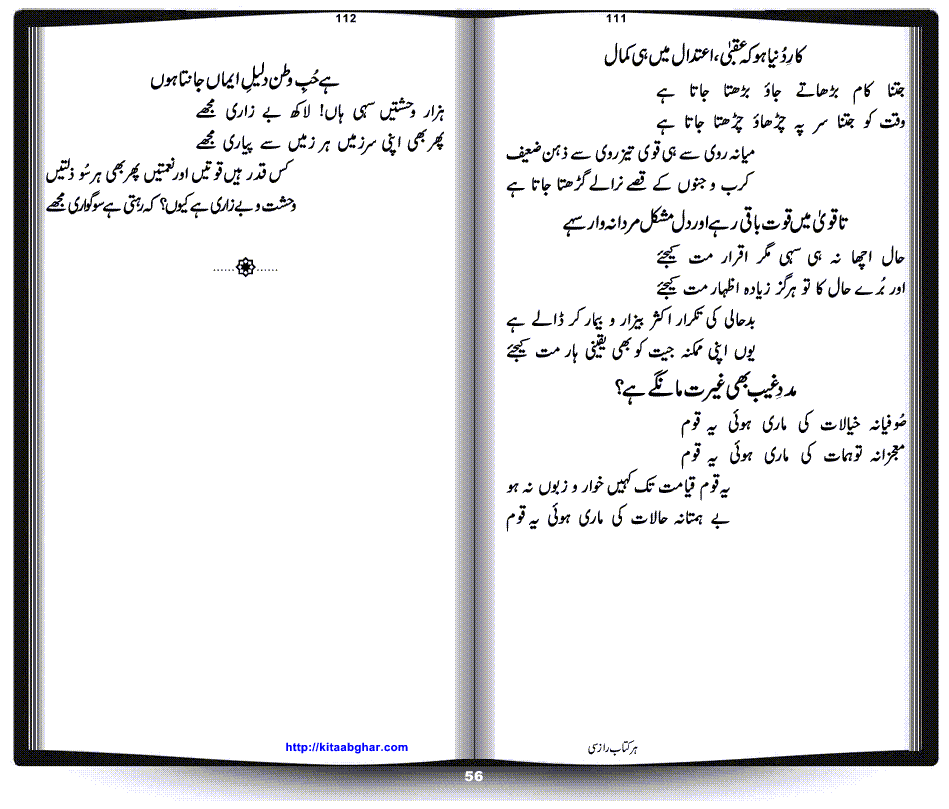 111
کارِ دُنیا ہو کہ عقبیٰ، اعتدال میں ہی کمال
جتنا کام بڑھاتے جاؤ بڑھتا جاتا ہے
وقت کو جتنا سر پہ چڑھاؤ چڑھتا جاتا ہے
میانہ روی سے ہی قوی تیز روی سے ذہن ضعیف
کرب و جنوں کے قصے نرالے گڑھتا جاتا ہے
تا قویٰ میں قوت باقی رہے اور دل مشکل مردانہ وار سہے
حال اچھا نہ ہی سہی مگر اقرار مت کیجئے
اور بُرے حال کا تو ہرگز زیادہ اظہار مت کیجئے
بدحالی کی تکرار اکثر بیزار و بیمار کر ڈالے ہے
یوں اپنی ممکنہ جیت کو بھی یقینی ہار مت کیجئے
مددِ غیب بھی غیرت مانگے ہے؟
صُوفیانہ خیالات کی ماری ہوئی یہ قوم
معجزانہ توہمات کی ماری ہوئی یہ قوم
یہ قوم قیامت تک کہیں خوار و زبوں نہ ہو
بے ہمتانہ حالات کی ماری ہوئی یہ قوم
ہر کتاب رازسی
112
ہے حُبِ وطن دلیلِ ایماں جانتا ہوں
ہزار وحشتیں سہی ہاں! لاکھ بے زاری مجھے
پھر بھی اپنی سرزمیں ہر زمیں سے پیاری مجھے
کس قدر ہیں قوتیں اور نعمتیں پھر بھی ہر سُو ذلتیں
وحشت و بے زاری ہے کیوں؟ کہ رہتی ہے سوگواری مجھے
http://kitaabghar.com
56